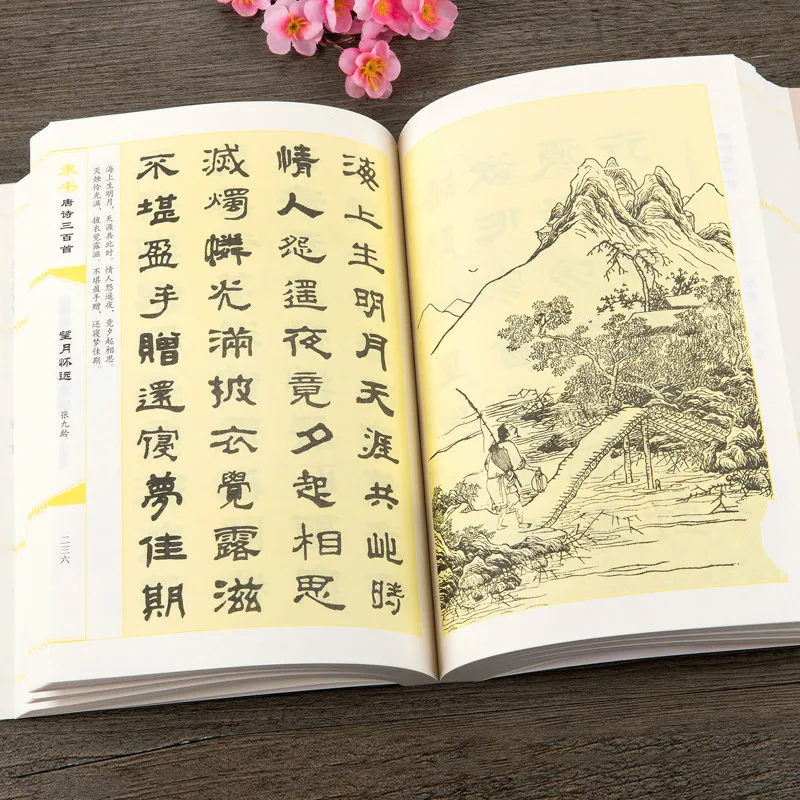 海上生明月天涯共此時
情人怨遙夜竟夕起相思
滅燭憐光滿披衣覺露滋
不堪盈手贈還寢夢佳期
海上生明月，天涯共此时。情人怨遥夜，竟夕起相思。
灭烛怜光满，披衣觉露滋。不堪盈手赠，还寝梦佳期。
隶书 唐诗三百首
望月怀远
张九龄
二三六